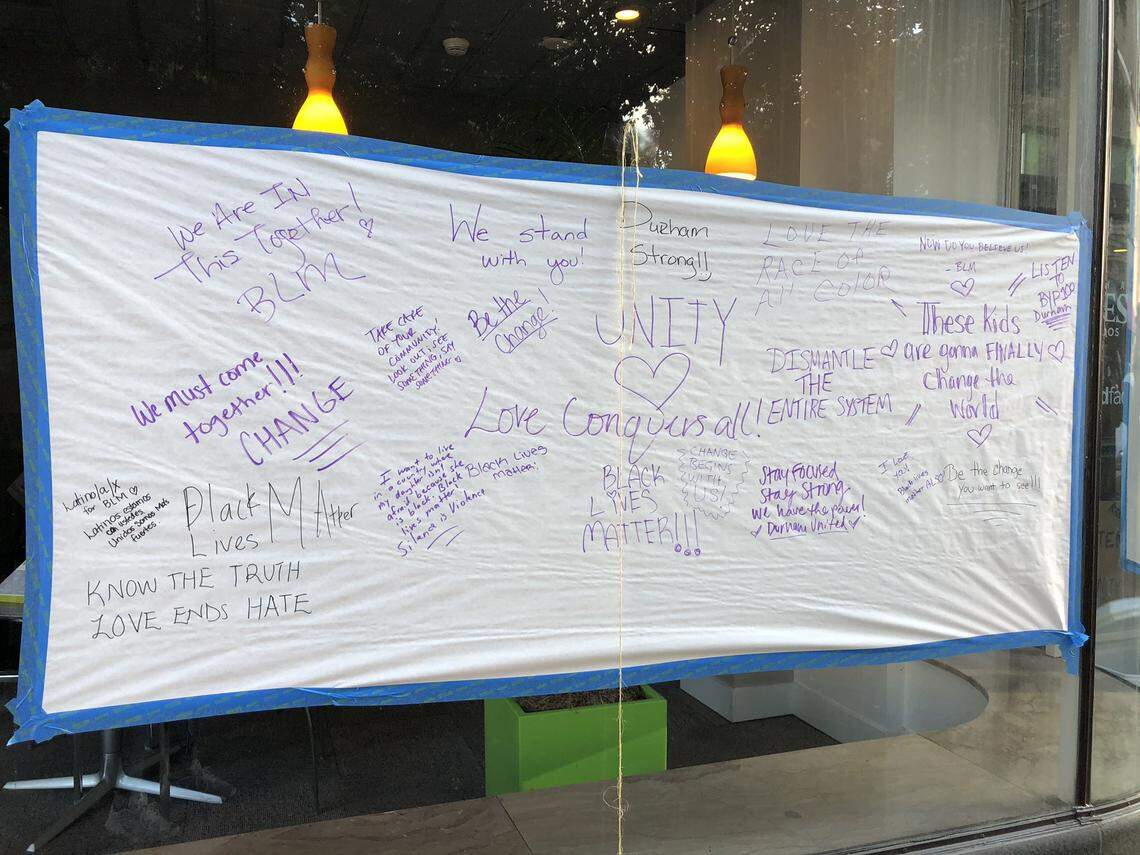 We Are IN
This Together!
BLM
We stand
with you!
Durham
Strong!!
LOVE THE
RACE OF
AN COLOR
NOW DO YOU BELIEVE US!
- BLM
LISTEN
TO
BYP100
Durham
TAKE CARE
OF YOUR
COMMUNITY!
LOOK OUT & SEE
SOMETHING, SAY
SOMETHING
Be the
Change!
UNITY
These Kids
are gonna FINALLY
Change the
World
We must come
together!!!
CHANGE
DISMANTLE
THE
ENTIRE SYSTEM
Love Conquers all!
Latino/a/x
for BLM
Latinos estamos
con ustedes
Unidos somos más
fuertes
Black MAtter
Lives
I want to live
in a country where
my daughter isn't
afraid because she
is black. Black
lives matter.
Silence is Violence
Black Lives
Matter!
BLACK
LIVES
MATTER!!!
CHANGE
BEGINS
WITH
US!
Stay Focused
Stay Strong
We have the power!
Durham United
I Love
you
Black lives
matter ALSO
Be the change
you want to see!!!
KNOW THE TRUTH
LOVE ENDS HATE